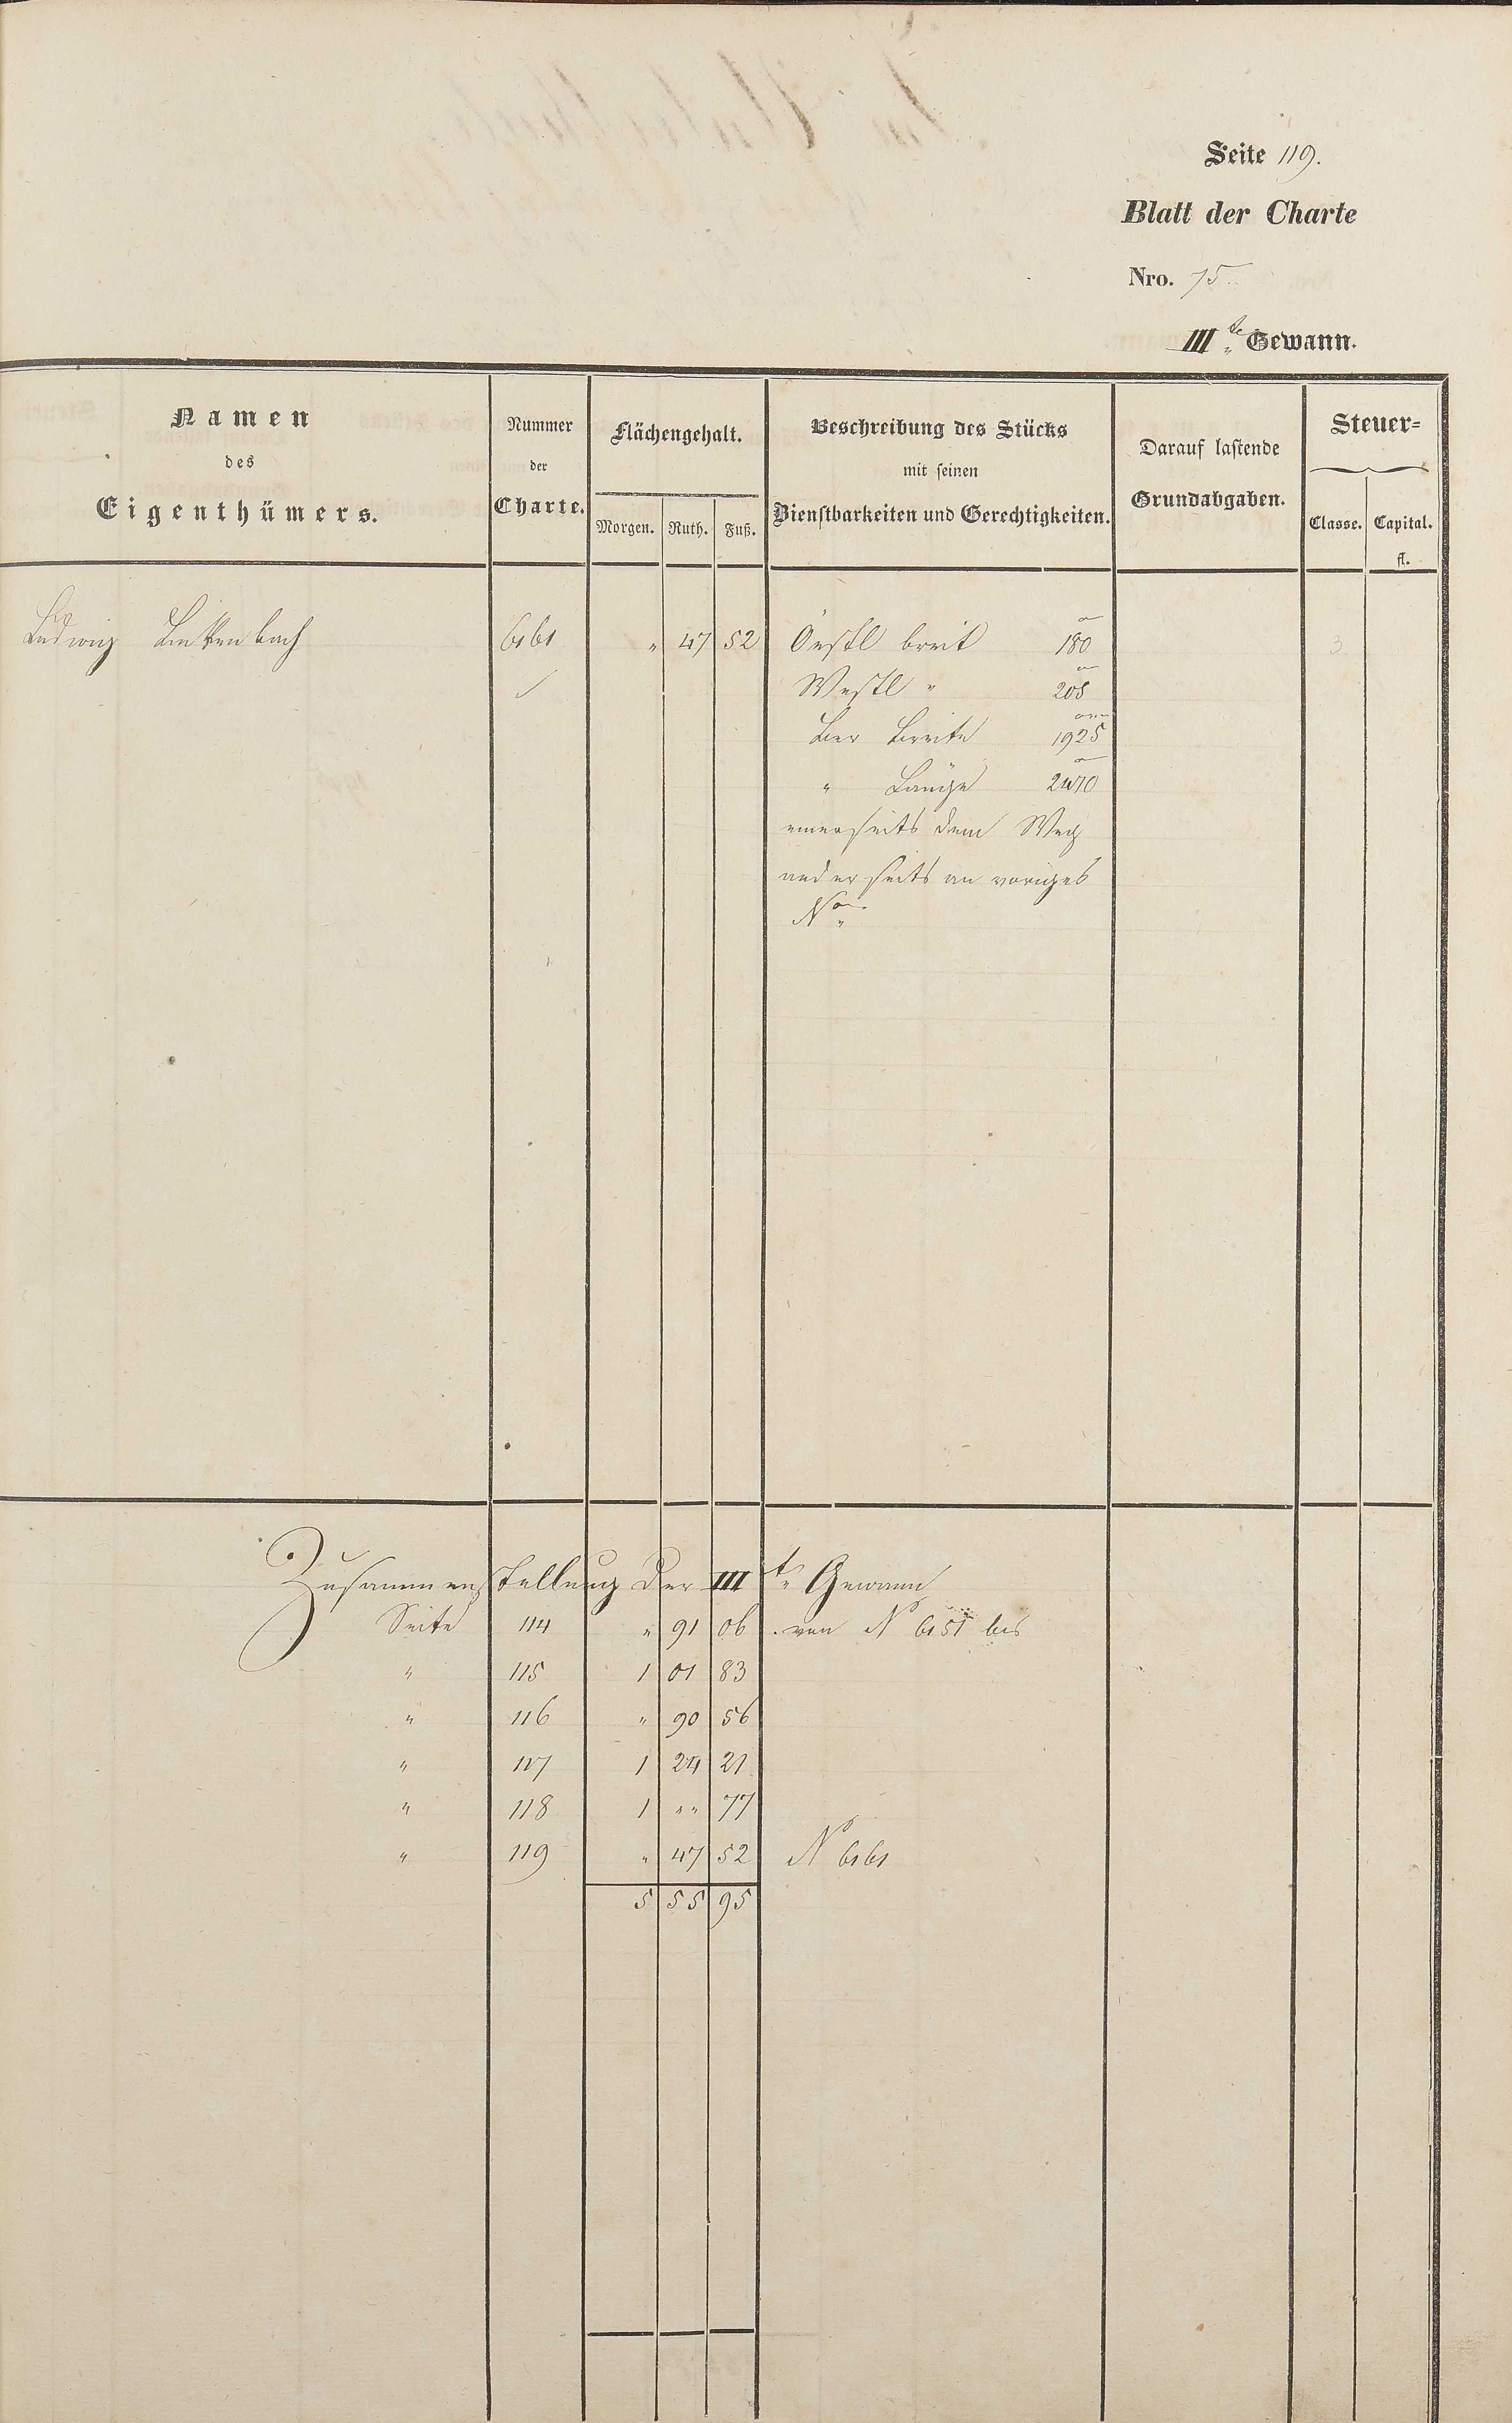 Seite 119.
Blatt der Charte
Nro. 75.
III te Gewann.
Namen
des
Eigenthümers.
Nummer
der
Charte.
Flächengehalt.
Morgen. Ruth. Fuß.
Beschreibung des Stücks
mit seinen
Dienstbarkeiten und Gerechtigkeiten.
Darauf lastende
Grundabgaben.
Steuer-
Classe. Capital.
fl.
Ludwig 6161 " 47 52 Oestl breit 180 3
Westl " 205
Ber Breite 1925
" Länge 2470
einerseits dem Weg
anderseits an voriges
No
Zusammenstellung der III te Gewann
Seite 114 " 91 06 von No 6151 bis
" 115 1 01 83
" 116 " 90 56
" 117 1 24 21
" 118 1 " " 77
" 119 " 47 52 No 6161
5 55 95